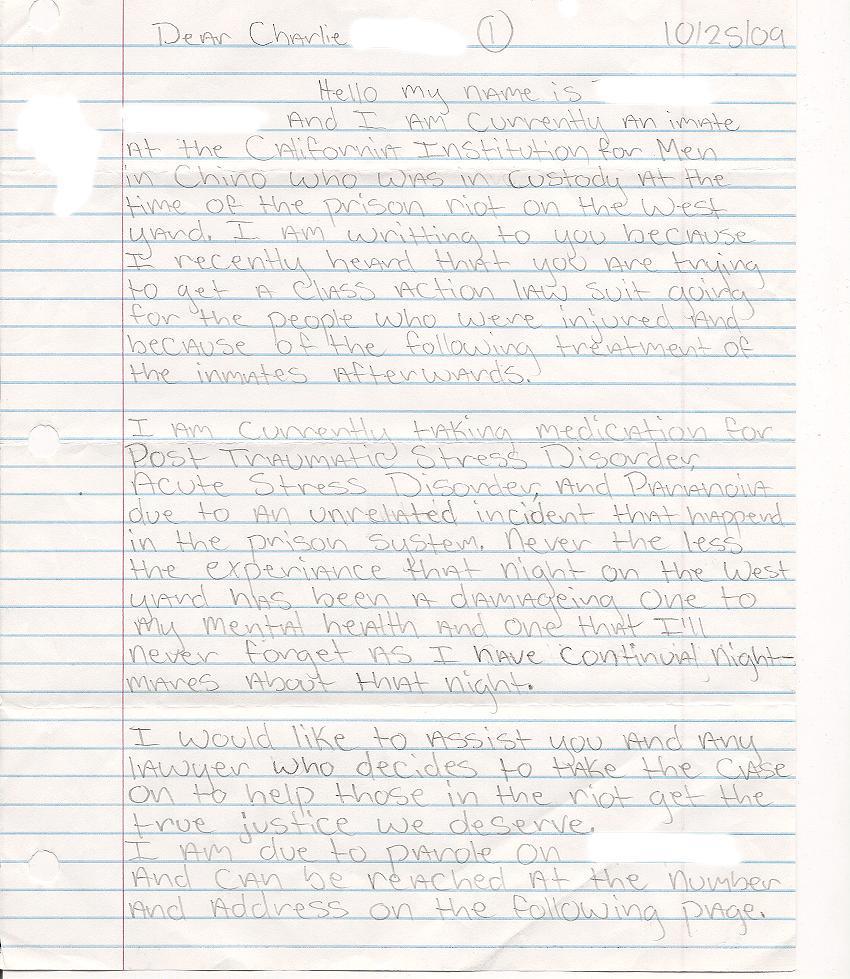 Dear Charlie 1 10/25/09
Hello my name is
And I Am Currently An imate
At the CAliforniA Institution for Men
in Chino who wAs in custody At the
time of the prison riot on the West
yArd. I Am writting to you because
I recently heard thAt you Are trying
to get A ClAss Action lAw suit going
for the people who were injured And
because of the following treAtment of
the inmAtes AfterwArds.
I Am currently tAking medicAtion for
Post TrAumAtic Stress Disorder,
Acute Stress Disorder, And PAriAnoiA
due to An unrelAted incident thAt hAppend
in the prison system. Never the less
the experiAnce thAt night on the West
yArd hAs been A dAmAgeing One to
My mentAl heAlth And one thAt I'll
never forget As I hAve continuiAl night-
mAres About thAt night.
I would like to Assist you And Any
lAwyer who decides to tAke the CAse
on to help those in the riot get the
true justice we deserve.
I Am due to pArole On
And CAn be reAched At the number
And Address on the following pAge.